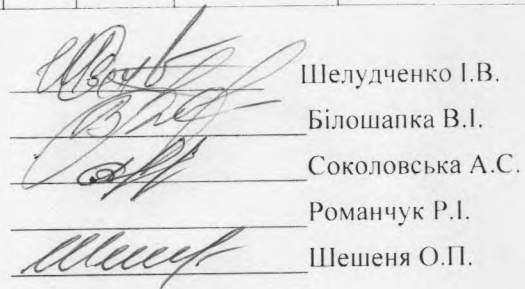 Шелудченко І.В.
Білошапка В.І.
Соколовська А.С.
Романчук Р.І.
Шешеня О.П.